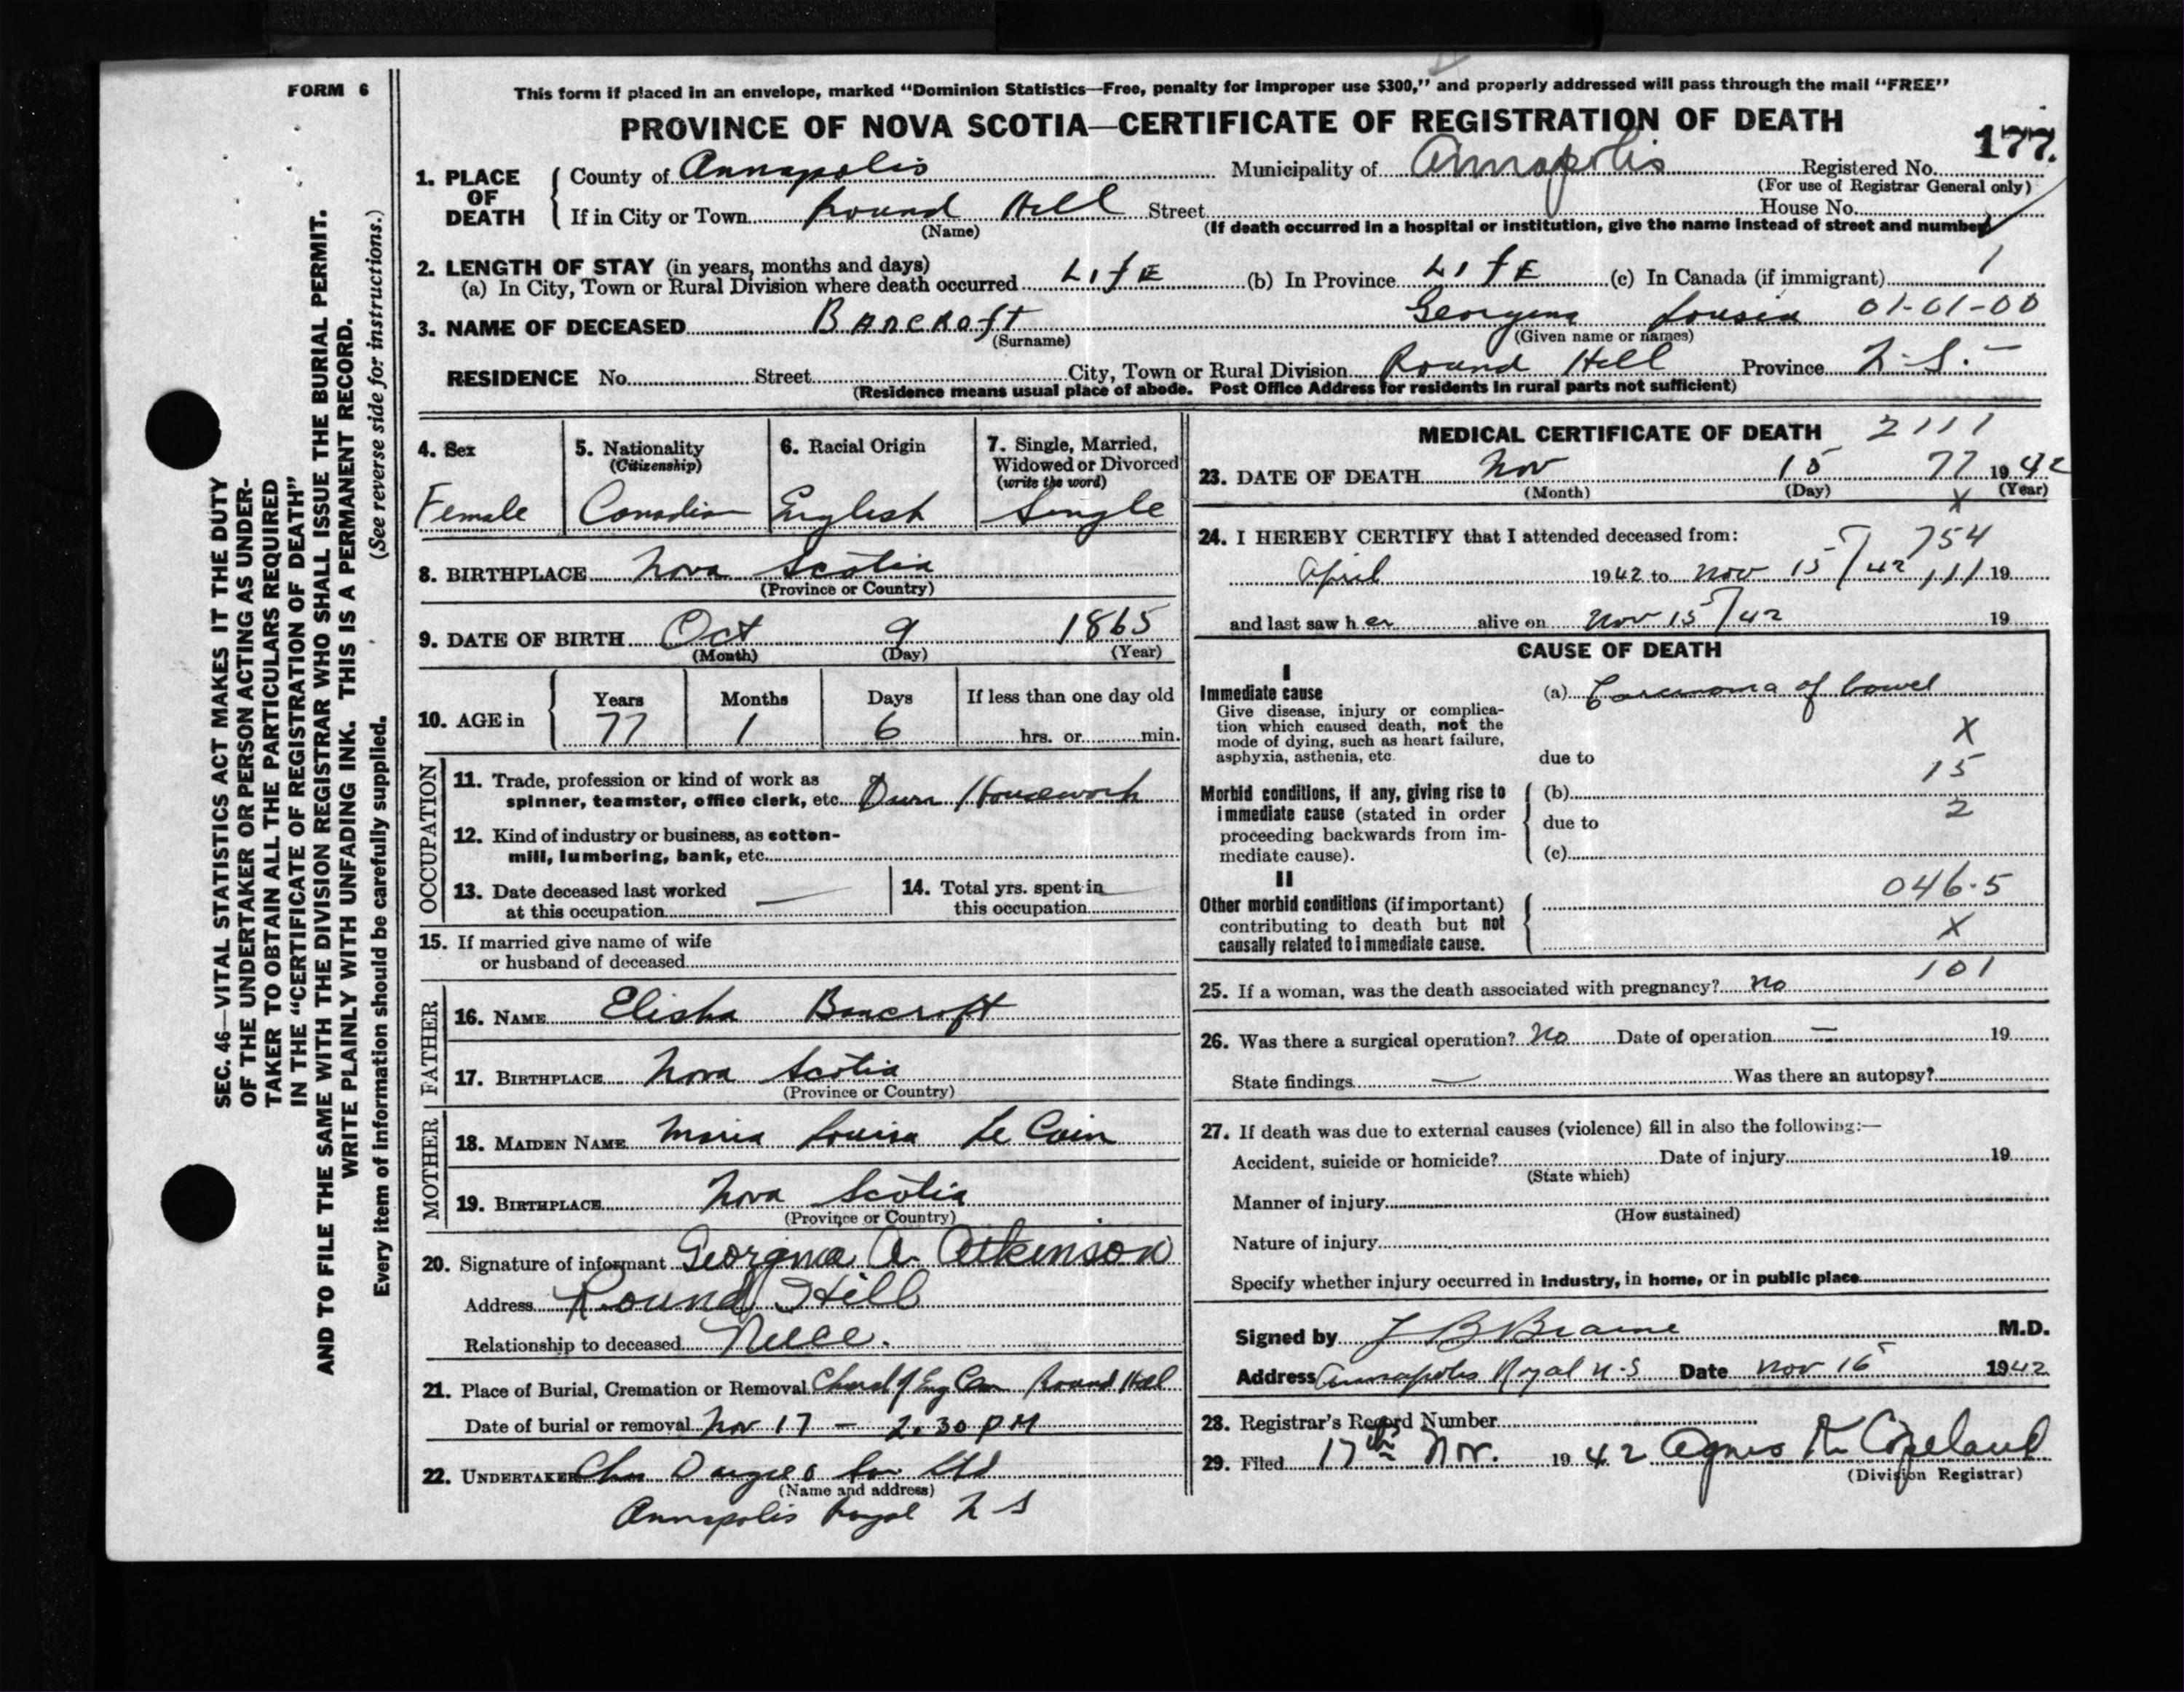 FORM 6
This form if placed in an envelope, marked “Dominion Statistics—Free, penalty for improper use $300,” and properly addressed will pass through the mail “FREE”
PROVINCE OF NOVA SCOTIA—CERTIFICATE OF REGISTRATION OF DEATH
177.
1. PLACE OF DEATH
County of Annapolis Municipality of Annapolis Registered No.
(For use of Registrar General only)
If in City or Town Round Hill Street House No.
(Name) (If death occurred in a hospital or institution, give the name instead of street and number)
2. LENGTH OF STAY (in years, months and days)
(a) In City, Town or Rural Division where death occurred LifE (b) In Province LifE (c) In Canada (if immigrant) 1
3. NAME OF DECEASED Bancroft Georgina Lousia 01-01-00
(Surname) (Given name or names)
RESIDENCE No. Street City, Town or Rural Division Round Hill Province N.S.
(Residence means usual place of abode. Post Office Address for residents in rural parts not sufficient)
SEC. 46—VITAL STATISTICS ACT MAKES IT THE DUTY
OF THE UNDERTAKER OR PERSON ACTING AS UNDER-
TAKER TO OBTAIN ALL THE PARTICULARS REQUIRED
IN THE “CERTIFICATE OF REGISTRATION OF DEATH”
AND TO FILE THE SAME WITH THE DIVISION REGISTRAR WHO SHALL ISSUE THE BURIAL PERMIT.
WRITE PLAINLY WITH UNFADING INK. THIS IS A PERMANENT RECORD.
Every item of information should be carefully supplied. (See reverse side for instructions.)
4. Sex
Female
5. Nationality
(Citizenship)
Canadian
6. Racial Origin
English
7. Single, Married,
Widowed or Divorced
(write the word)
Single
8. BIRTHPLACE Nova Scotia
(Province or Country)
9. DATE OF BIRTH Oct 9 1865
(Month) (Day) (Year)
10. AGE in
Years Months Days If less than one day old
77 1 6 hrs. or min.
OCCUPATION
11. Trade, profession or kind of work as
spinner, teamster, office clerk, etc. Own Housework
12. Kind of industry or business, as cotton-
mill, lumbering, bank, etc.
13. Date deceased last worked
at this occupation —
14. Total yrs. spent in
this occupation
15. If married give name of wife
or husband of deceased
FATHER
16. NAME Elisha Bancroft
17. BIRTHPLACE Nova Scotia
(Province or Country)
MOTHER
18. MAIDEN NAME Maria Louisa Le Cain
19. BIRTHPLACE Nova Scotia
(Province or Country)
20. Signature of informant Georgina A. Atkinson
Address Round Hill
Relationship to deceased Niece.
21. Place of Burial, Cremation or Removal Church of Eng Cem Round Hill
Date of burial or removal Nov 17 — 2.30 PM
22. UNDERTAKER Chas Son Ltd
(Name and address)
Annapolis Royal N S
MEDICAL CERTIFICATE OF DEATH 2111
23. DATE OF DEATH Nov 15 77 1942
(Month) (Day) (Year)
X
24. I HEREBY CERTIFY that I attended deceased from:
754
April 1942 to Nov 15/42 111 19
and last saw her alive on Nov 15/42 19
CAUSE OF DEATH
I
Immediate cause (a) Carcinoma of bowel
Give disease, injury or complica-
tion which caused death, not the
mode of dying, such as heart failure,
asphyxia, asthenia, etc.
X
due to
15
Morbid conditions, if any, giving rise to
immediate cause (stated in order
proceeding backwards from im-
mediate cause).
(b)
2
due to
(c)
II
046.5
Other morbid conditions (if important)
contributing to death but not
causally related to immediate cause.
X
101
25. If a woman, was the death associated with pregnancy? no
26. Was there a surgical operation? No Date of operation — 19
State findings — Was there an autopsy?
27. If death was due to external causes (violence) fill in also the following:—
Accident, suicide or homicide? Date of injury 19
(State which)
Manner of injury
(How sustained)
Nature of injury
Specify whether injury occurred in industry, in home, or in public place
Signed by B Braine M.D.
Address Annapolis Royal N.S Date Nov 16 1942
28. Registrar's Record Number
29. Filed 17th Nov. 1942 Agnes Copeland
(Division Registrar)